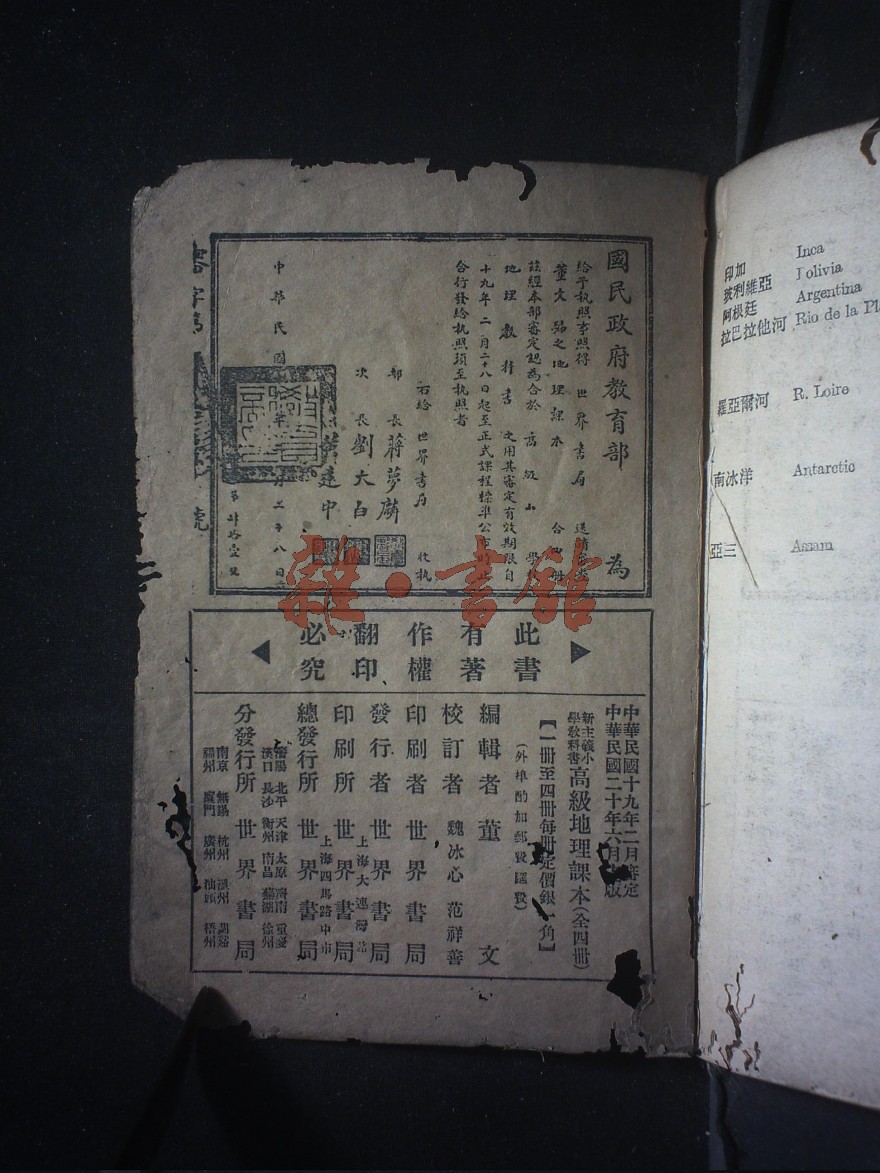 國民政府教育部 為
給予執照事照得 世界書局 送請審查
董文編之地理課本 合四冊
茲經本部審定認為合於 高級小學
地理教科書 之用其審定有效期限自
十九年二月二十八日起至正式課程標準公布時止
合行發給執照須至執照者
右給 世界書局 收執
部長 蔣夢麟
次長 劉大白
中華民國
年 月二十八日
號
雜·書館
此書
有著
作權
翻印
必究
中華民國十九年二月審定
中華民國二十年六月 版
新主義小學教科書 高級地理課本(全四冊)
【一冊至四冊每冊定價銀 角】
(外埠酌加郵費匯費)
編輯者 董文
校訂者 魏冰心 范祥善
印刷者 世界書局
發行者 世界書局
上海大連灣路
印刷所 世界書局
上海四馬路中市
總發行所 世界書局
瀋陽 北平 天津 太原 濟南 重慶
漢口 長沙 衡州 南昌 蕪湖 徐州
分發行所 世界書局
南京 無錫 杭州
福州 廈門 廣州 汕頭 梧州
印加 Inca
玻利維亞 olivia
阿根廷 Argentina
拉巴拉他河 Rio de la Pla
羅亞爾河 R. Loire
南冰洋 Antarctic
亞三 Assam